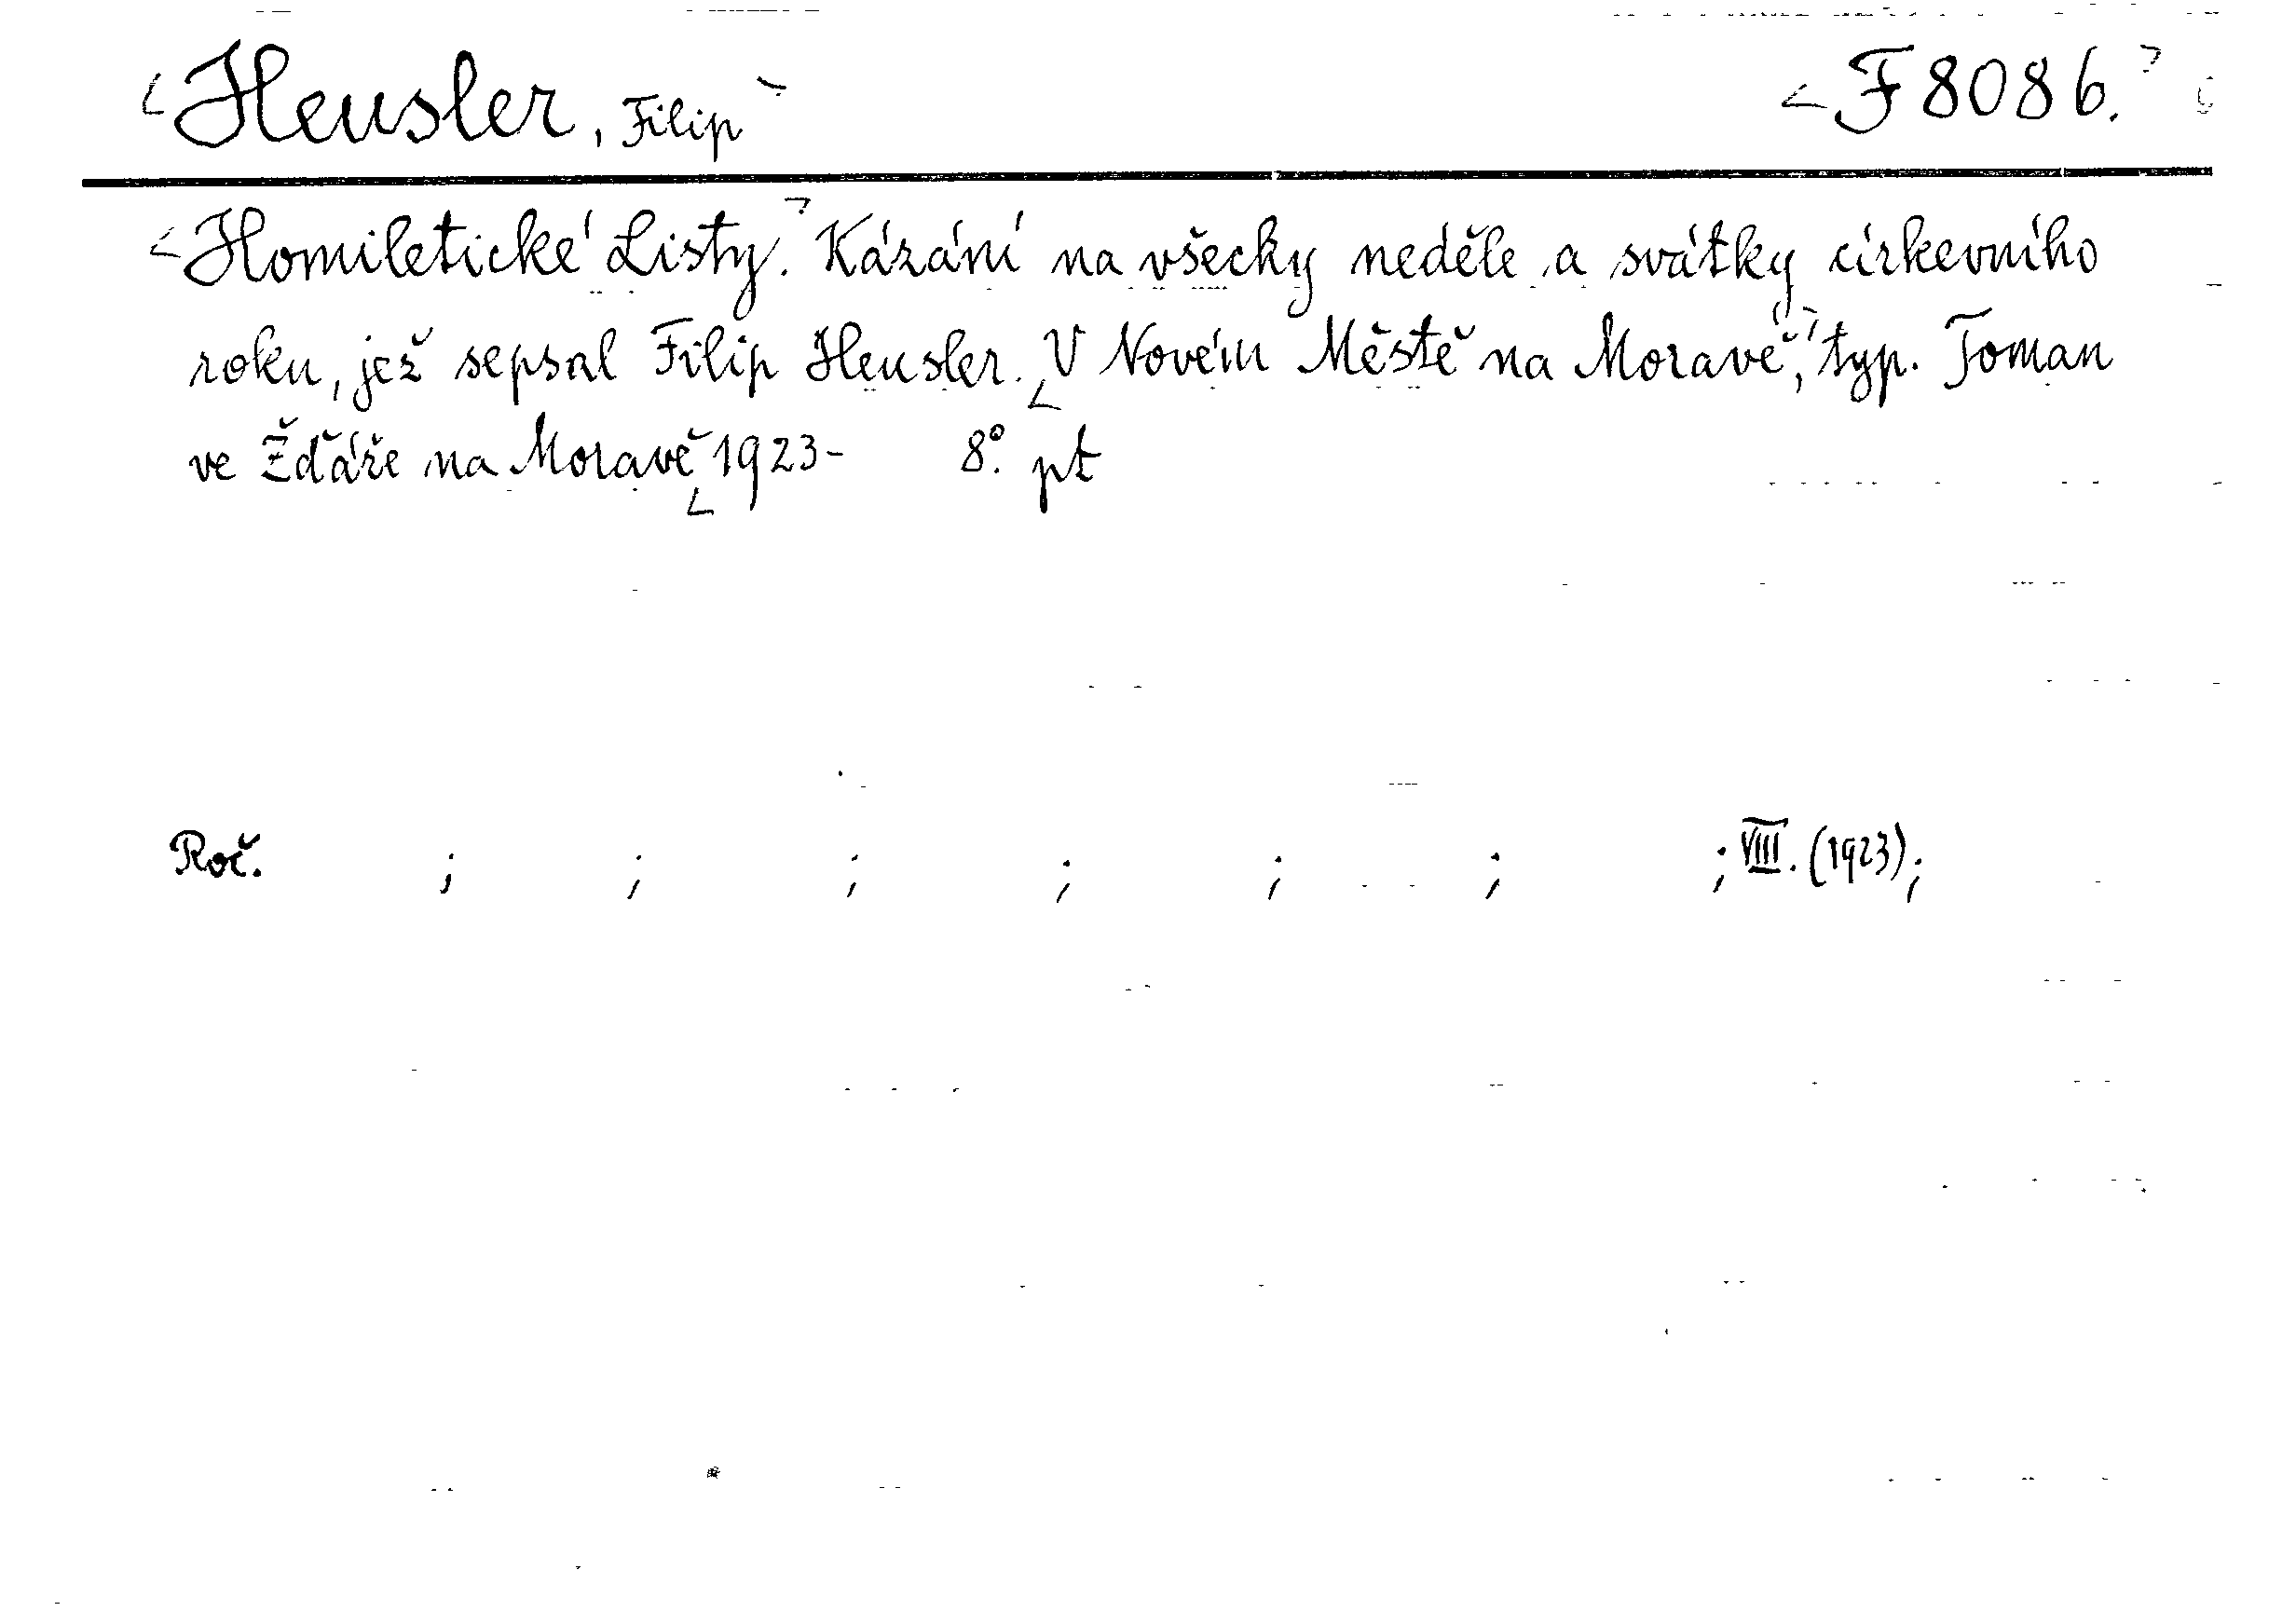 Heusler, Filip F 8086.
Homiletické Listy. Kázání na všecky neděle a svátky církevního
roku, jež sepsal Filip Heusler. V Novém Městě na Moravě, typ. Toman
ve Žďáře na Moravě 1923- 8°. pt
Roč. ; ; ; ; ; ; ; VIII. (1923);